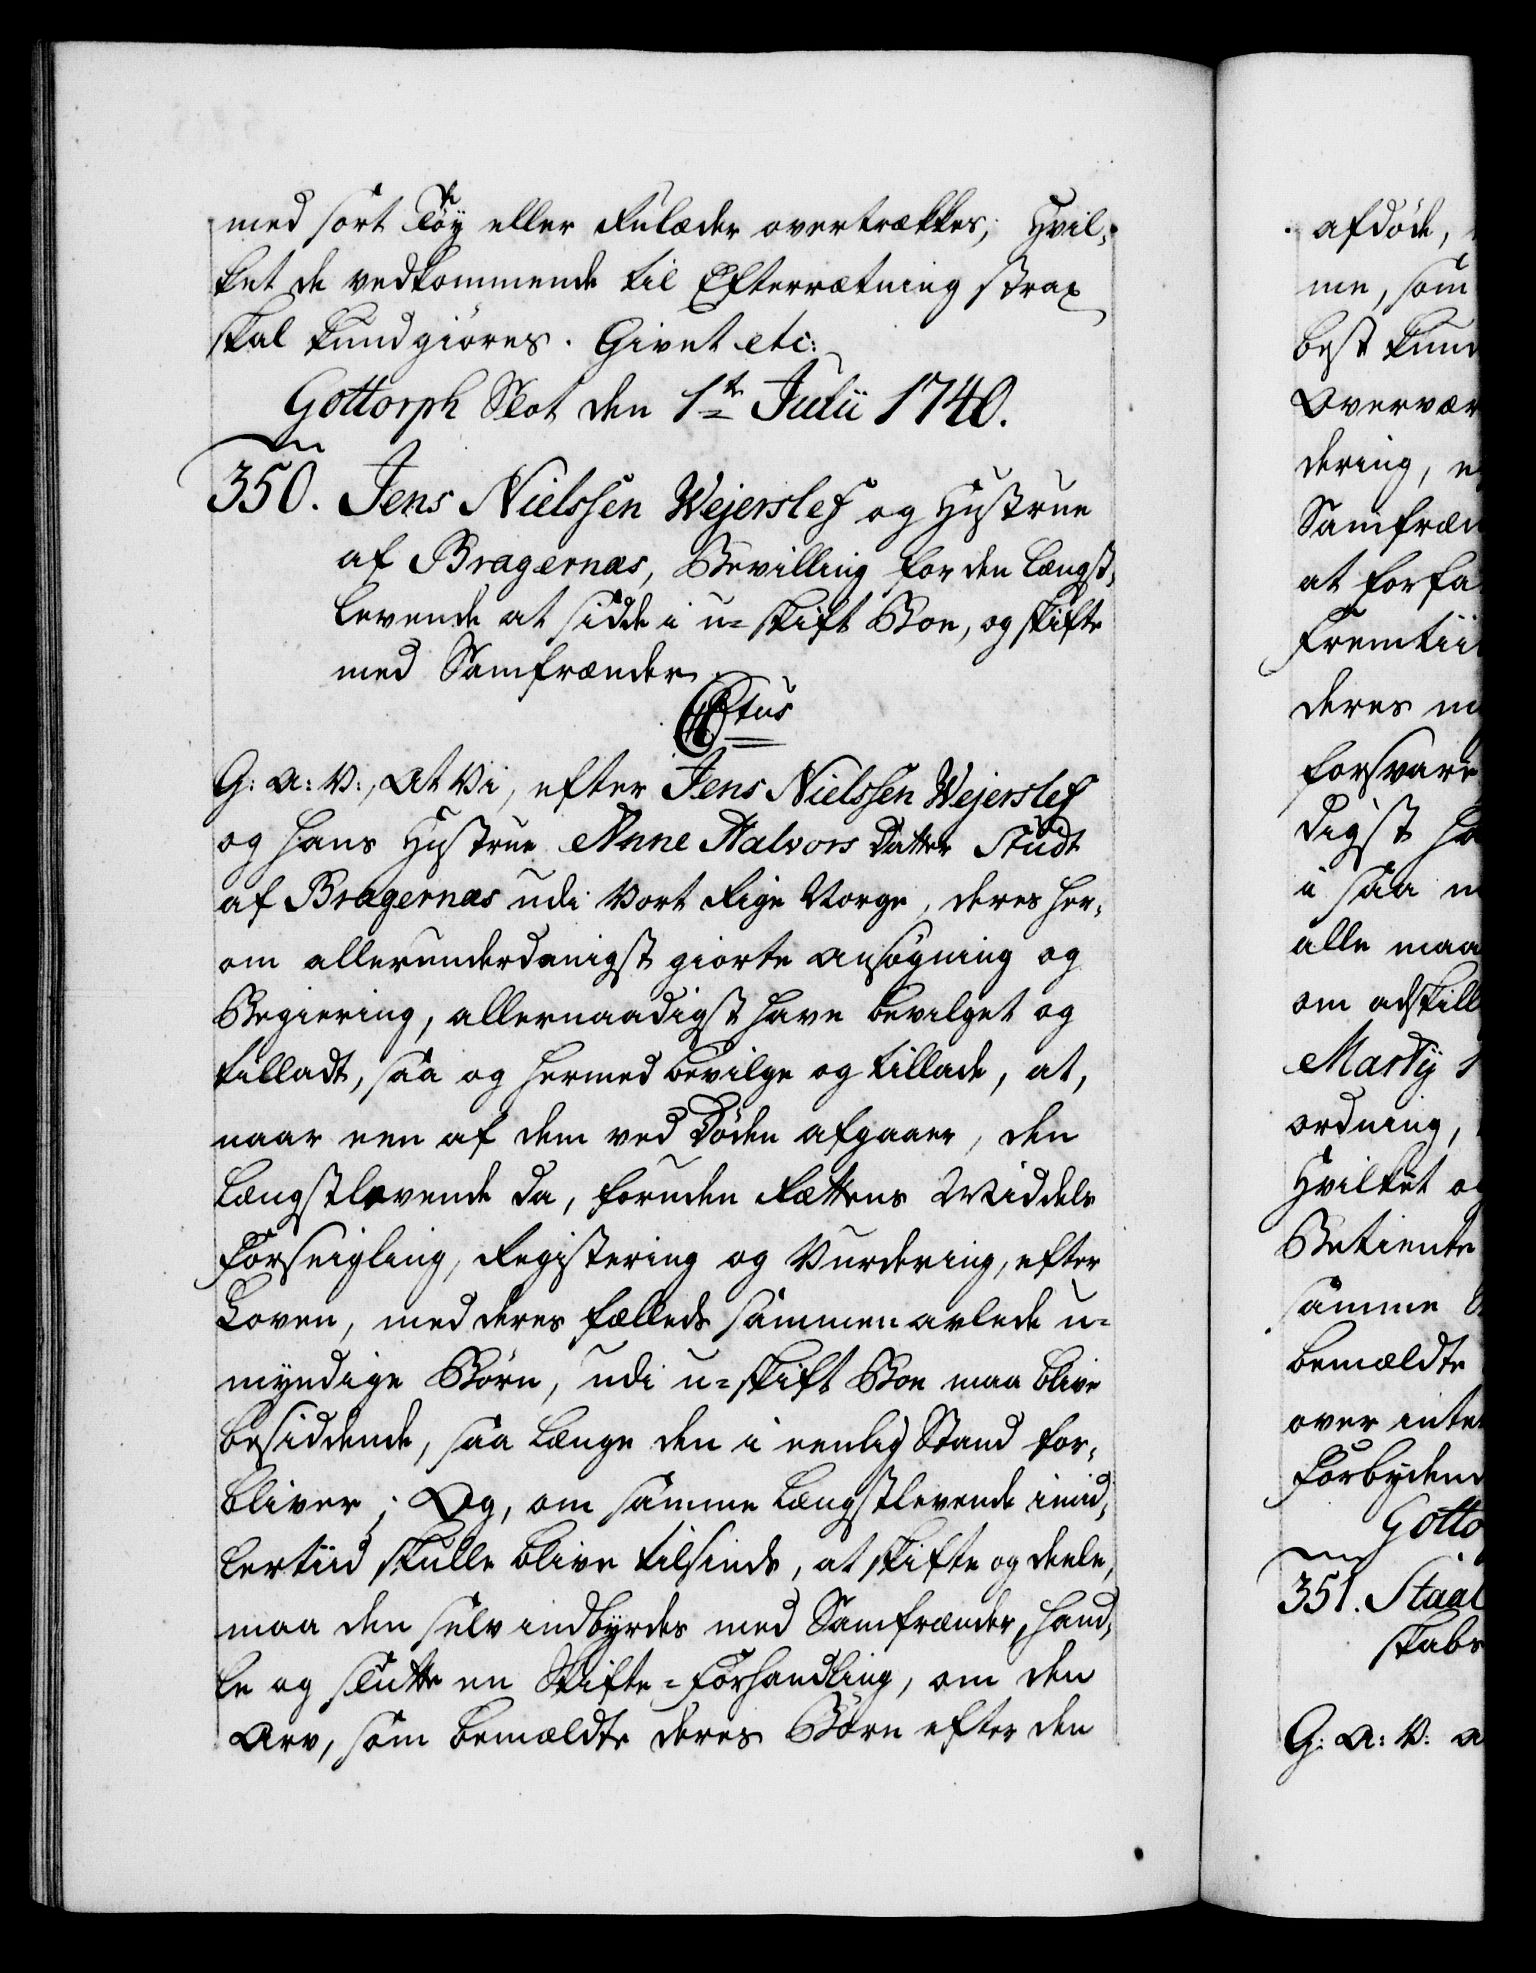 med sort Tøy eller Rulæder overtrækkes; Hvil,
ket de vedkommende til Efterretning strax
skal kundgiøres. Givet etc:
Gottorph Slot den 1te Julii 1740.
350. Jens Nielssen Wejerslef og Hustrue
af Bragernæs, Bevilling for den Længst,
levende at sidde i u=skift Boe, og skifte
med Samfrænder.
Ctus
G: A: V:, At Vi, efter Jens Nielssen Wejerslef
og hans Hustrue Anne Halvors Datter Studt
af Bragernæs udi Vort Rige Norge, deres her,
om allerunderdanigst giorte Ansøgning og
Begiering, allernaadigst have bevilget og
tilladt, saa og hermed bevilge og tillade, at,
naar een af dem ved Døden afgaaer, den
Længstlevende da, foruden Rættens Middels
Forseigling, Registering og Vurdering, efter
Loven, med deres fælleds sammen avlede u=
myndige Børn, udi u=skift Boe maa blive
besiddende, saa længe den i eenlig Stand for,
bliver; Og, om samme Længstlevende imid,
lertiid skulle blive tilsinds, at skifte og deele,
maa den selv indbyrdes med Samfrænder, hand,
le og slutte en Skifte=Forhandling, om den
Arv, som bemældte deres Børn efter den
afdøde,
me, som
best kund
Overvær
dering, e
Samfræn
at forfa
Fremtiid
deres m
forsvare
digst ha
i saa m
alle maa
om adskill
Martij 1
ordning,
Hvilket og
Betiente
samme
bemældte
over inte
Forbydend
Gotto
351. Staal
skabs
G: A: V: a